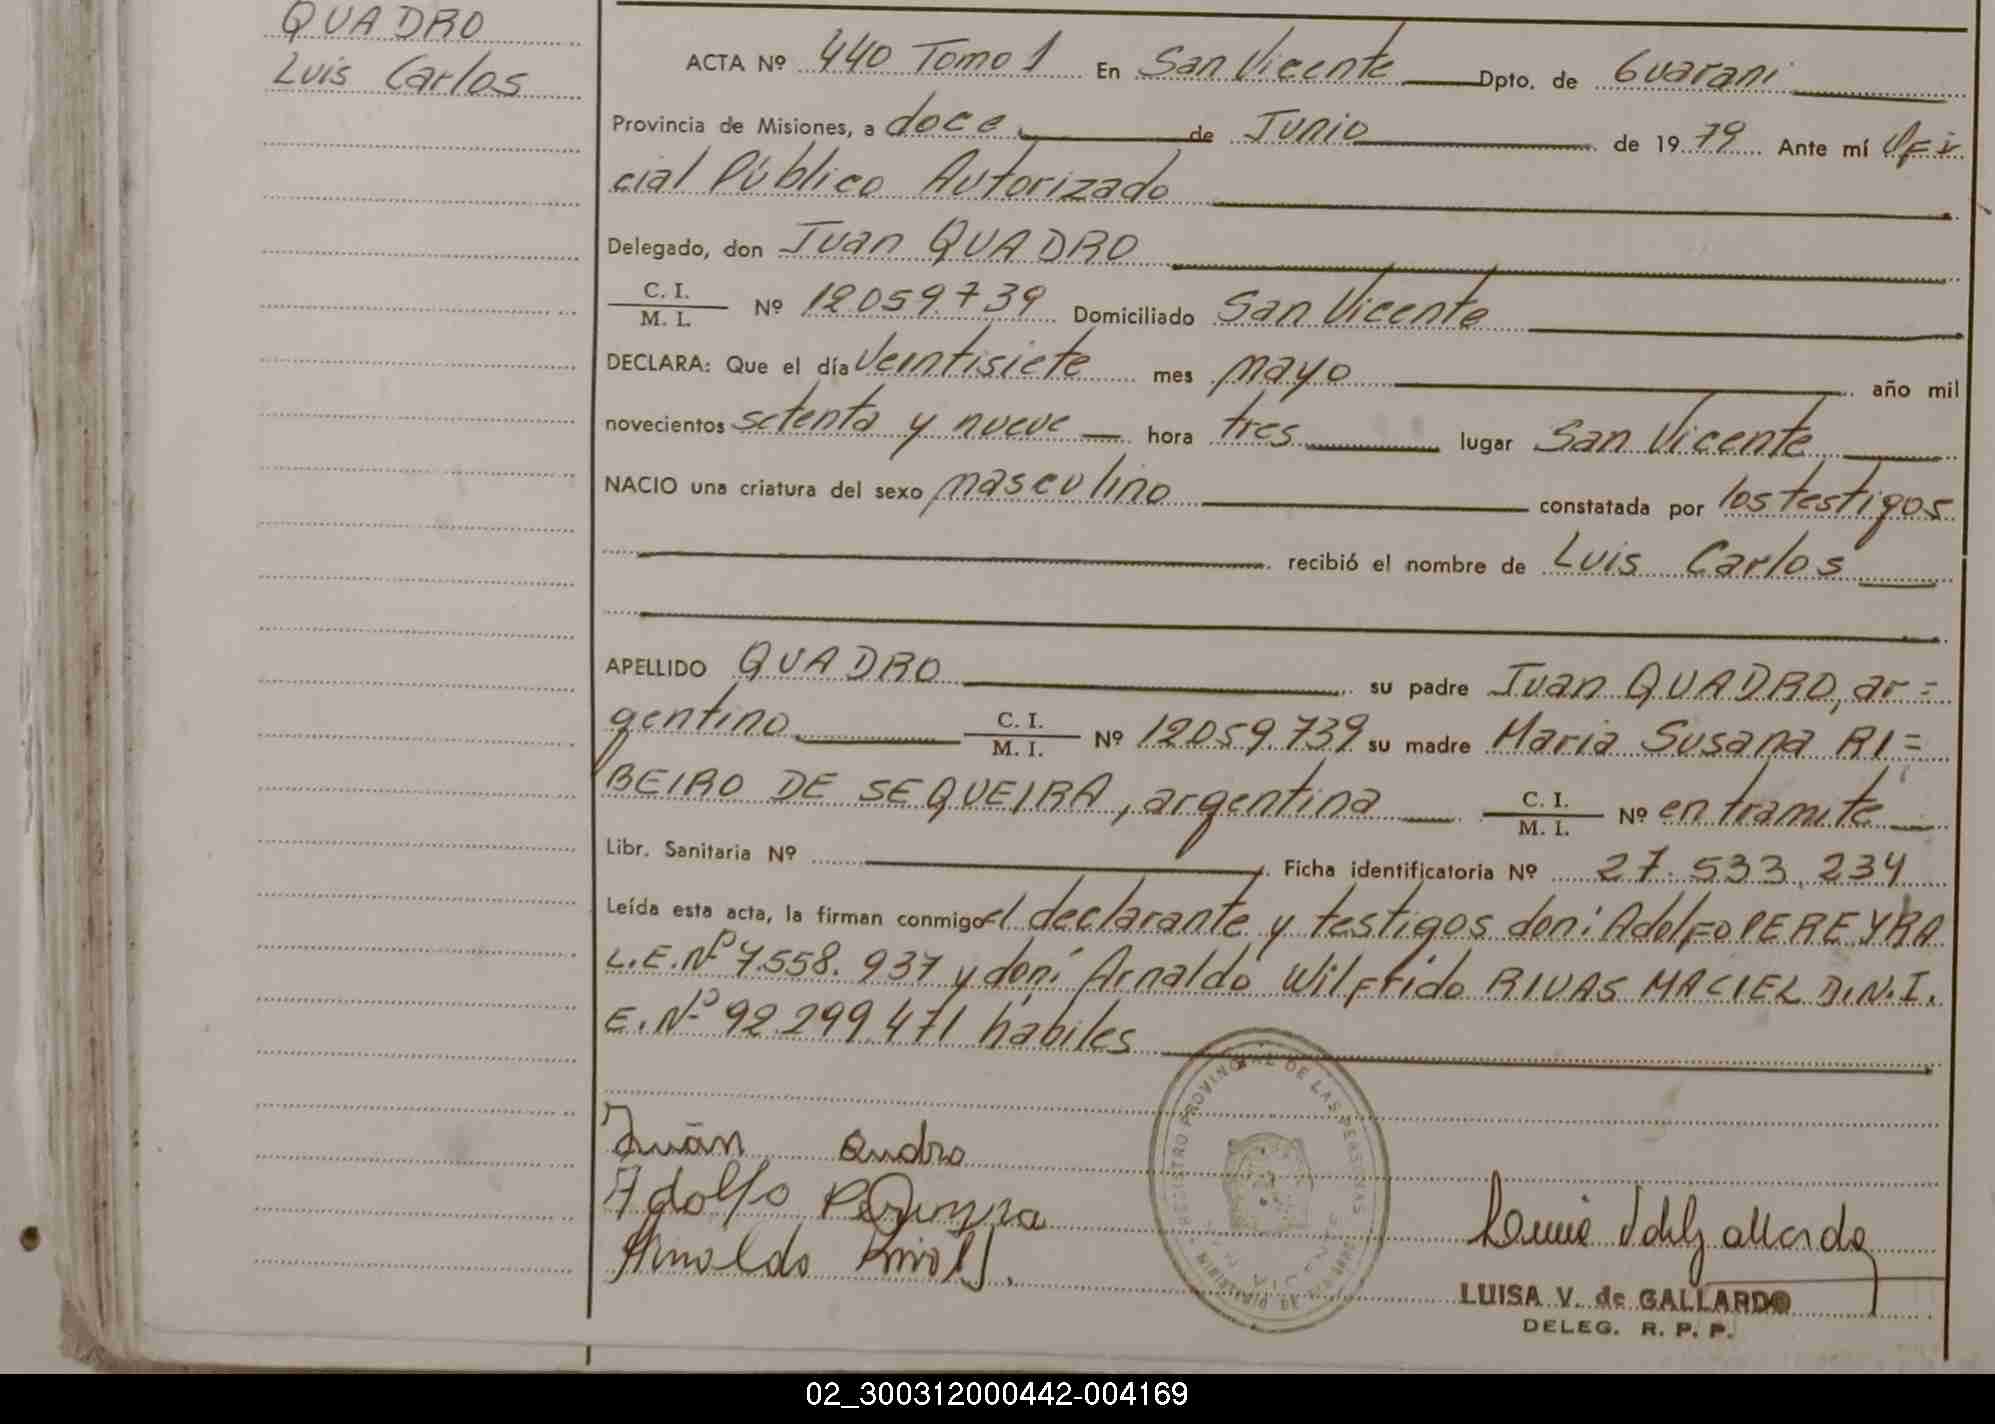 QUADRO
Luis Carlos
ACTA Nº 440 Tomo 1 En San Vicente Dpto. de Guarani
Provincia de Misiones, a doce de Junio de 1979 Ante mí Ofi
cial Público Autorizado
Delegado, don Juan QUADRO
C. I.
M. I. Nº 12059.739 Domiciliado San Vicente
DECLARA: Que el día Veintisiete mes mayo año mil
novecientos setenta y nueve hora tres lugar San Vicente
NACIO una criatura del sexo masculino constatada por los testigos
recibió el nombre de Luis Carlos
APELLIDO QUADRO su padre Juan QUADRO, ar=
gentino C. I.
M. I. Nº 12059.739 su madre Maria Susana RI=
BEIRO DE SEQUEIRA, argentina C. I.
M. I. Nº en tramite
Libr. Sanitaria Nº Ficha identificatoria Nº 27.533.234
Leída esta acta, la firman conmigo el declarante y testigos don: Adolfo PEREYRA
L.E.Nº 7.558.937 y don: Arnaldo Wilfrido RIVAS MACIEL D.N.I.
E. Nº 92.299.471 habiles
Juan Quadro
Adolfo
Arnaldo
REGISTRO PROVINCIAL DE LAS PERSONAS
LUISA V. de GALLARDO
DELEG. R. P. P.
02_300312000442-004169